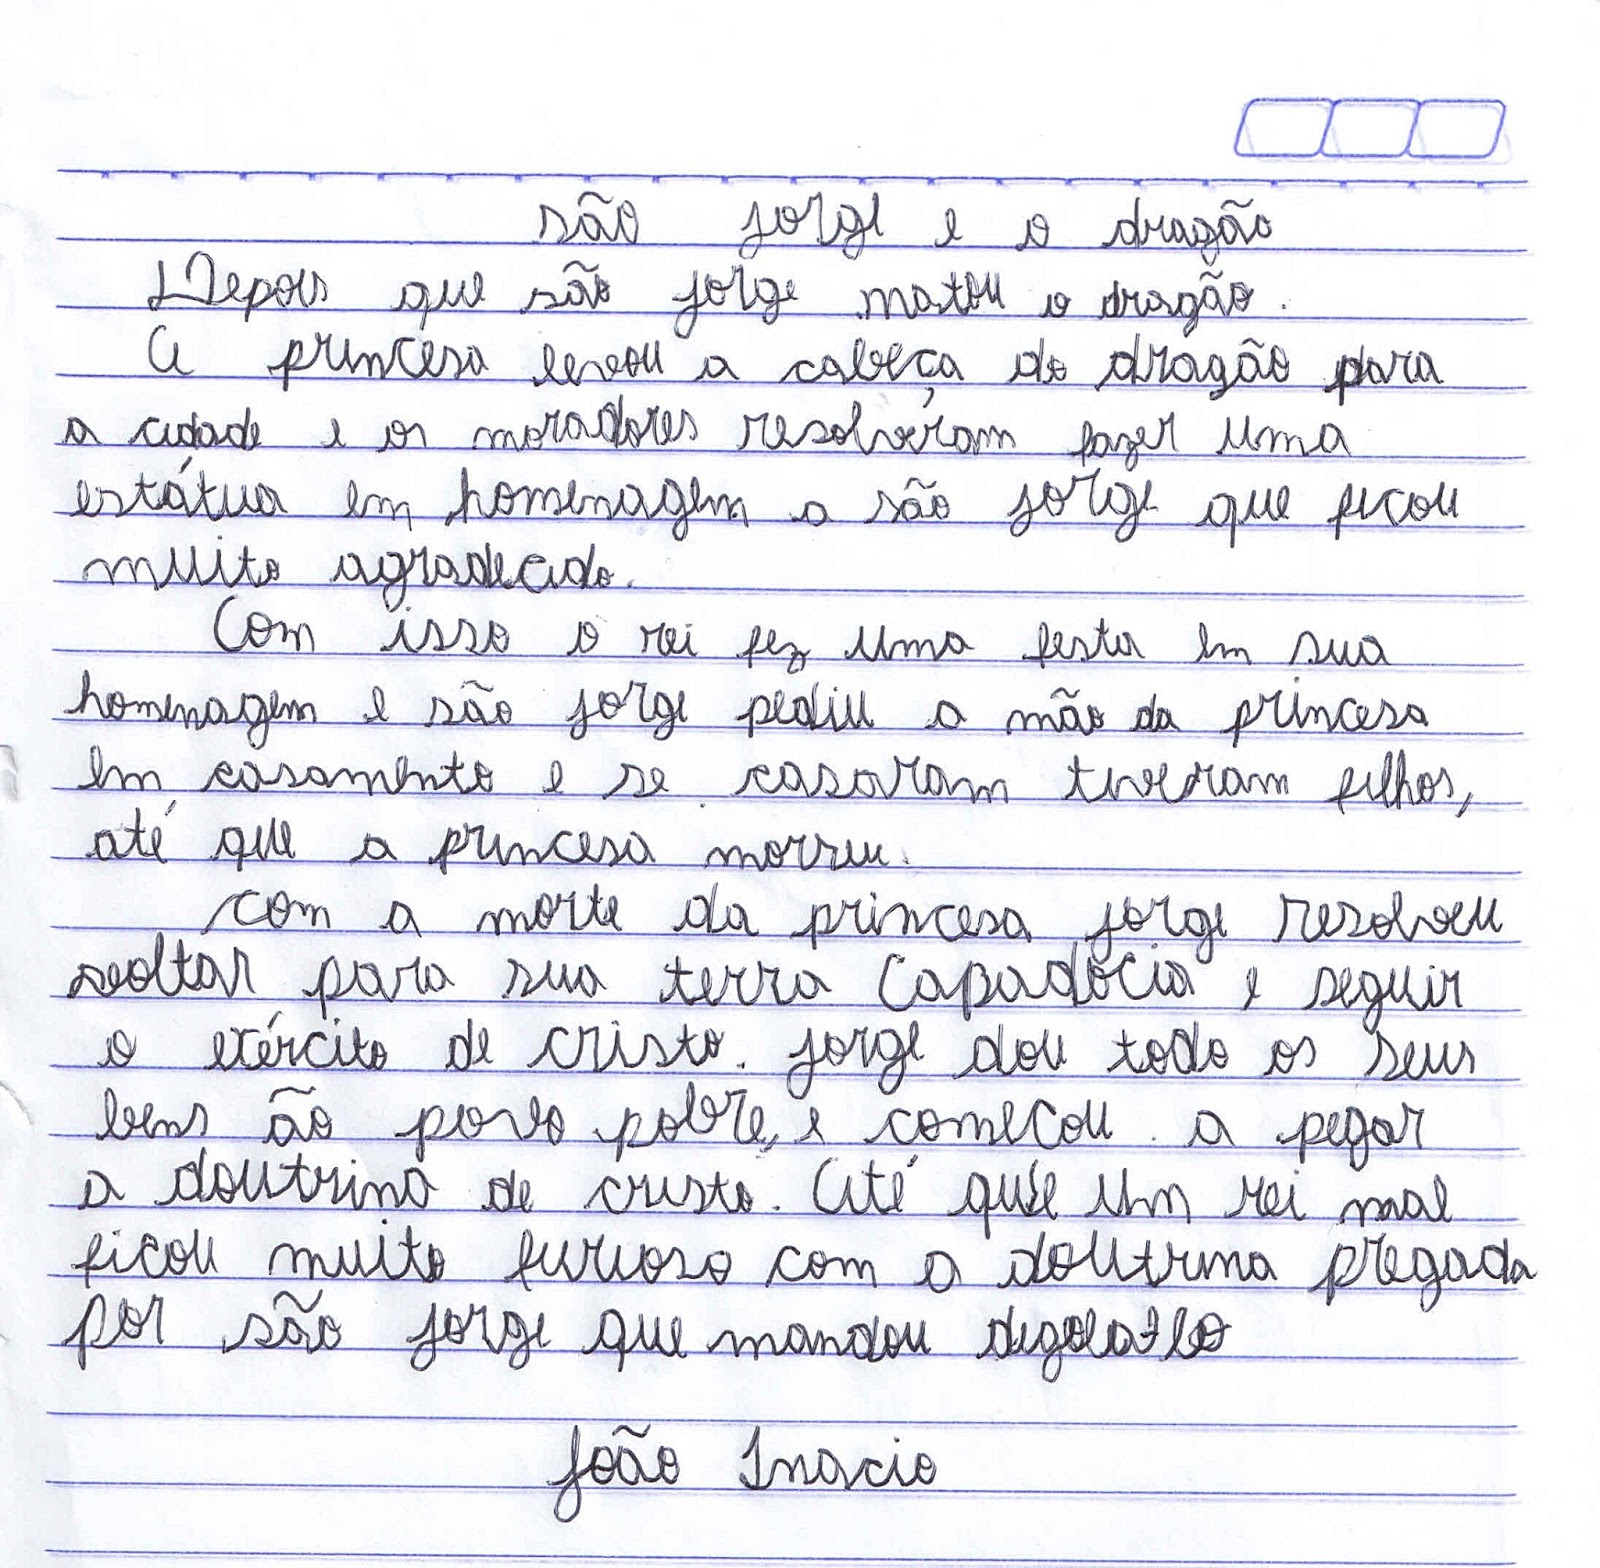 são jorge e o dragão
Depois que são jorge matou o dragão.
A princesa levou a cabeça do dragão para
a cidade e os moradores resolveram fazer uma
estátua em homenagem a são jorge que ficou
muito agradecido.
Com isso o rei fez uma festa em sua
homenagem e são jorge pediu a mão da princesa
em casamento e se casaram tiveram filhos,
até que a princesa morreu.
com a morte da princesa jorge resolveu
voltar para sua terra Capadócia e seguir
o exército de cristo. jorge dou todo os seus
bens ão povo pobre, e comecou a pegar
a doutrina de cristo. Até que um rei mal
ficou muito furioso com a doutrina pregada
por são jorge que mandou
João Inacio